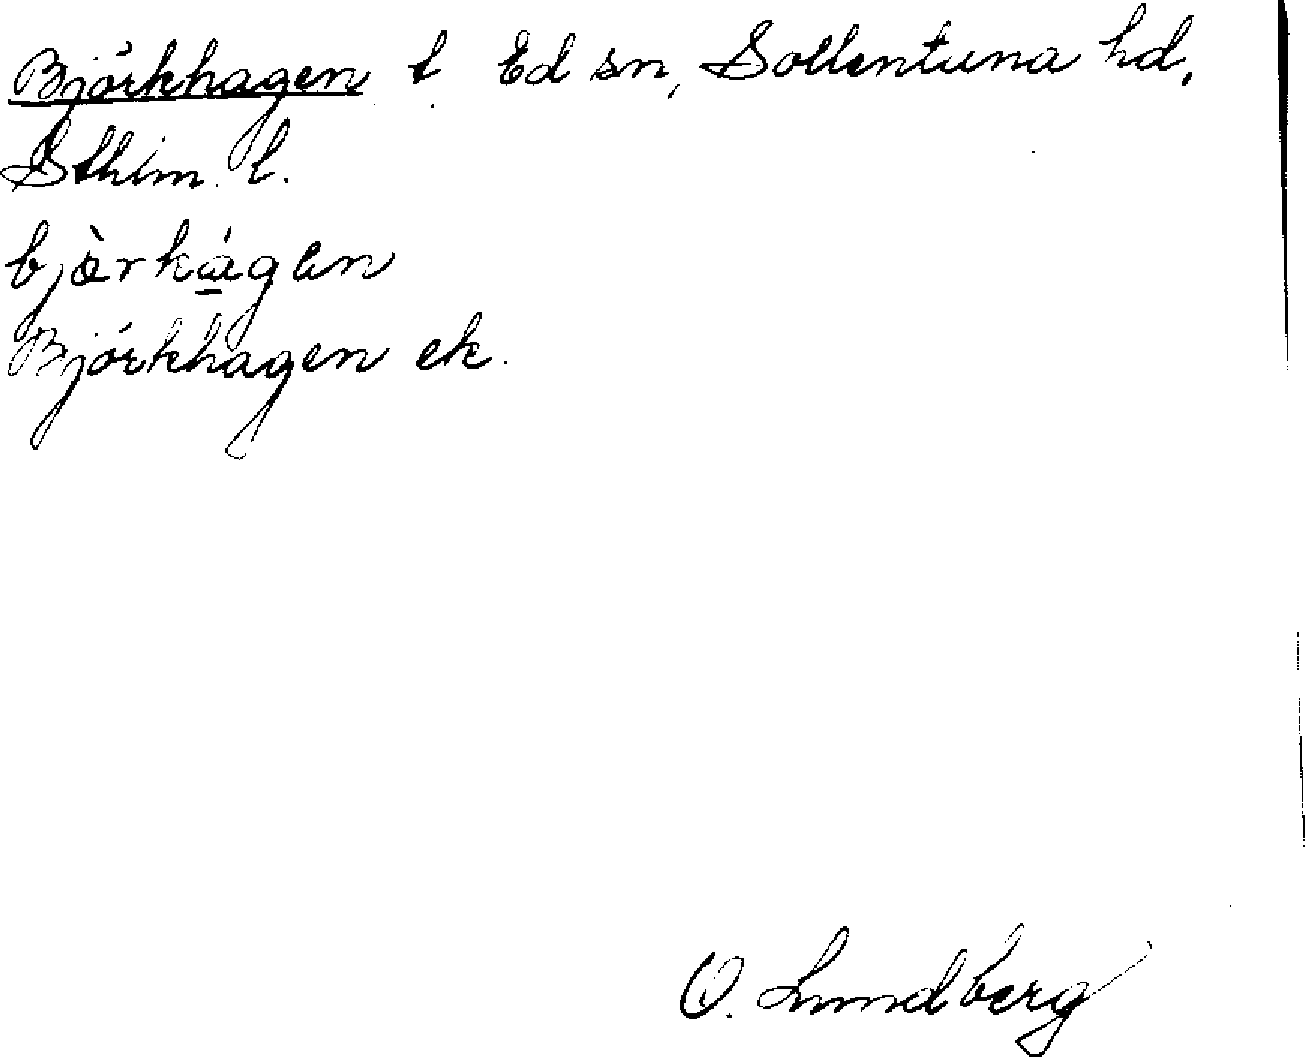 Björkhagen t. Ed sn, Sollentuna hd,
Sthlm. l.
bjòrkágen
Björkhagen ek.
O. Lundberg